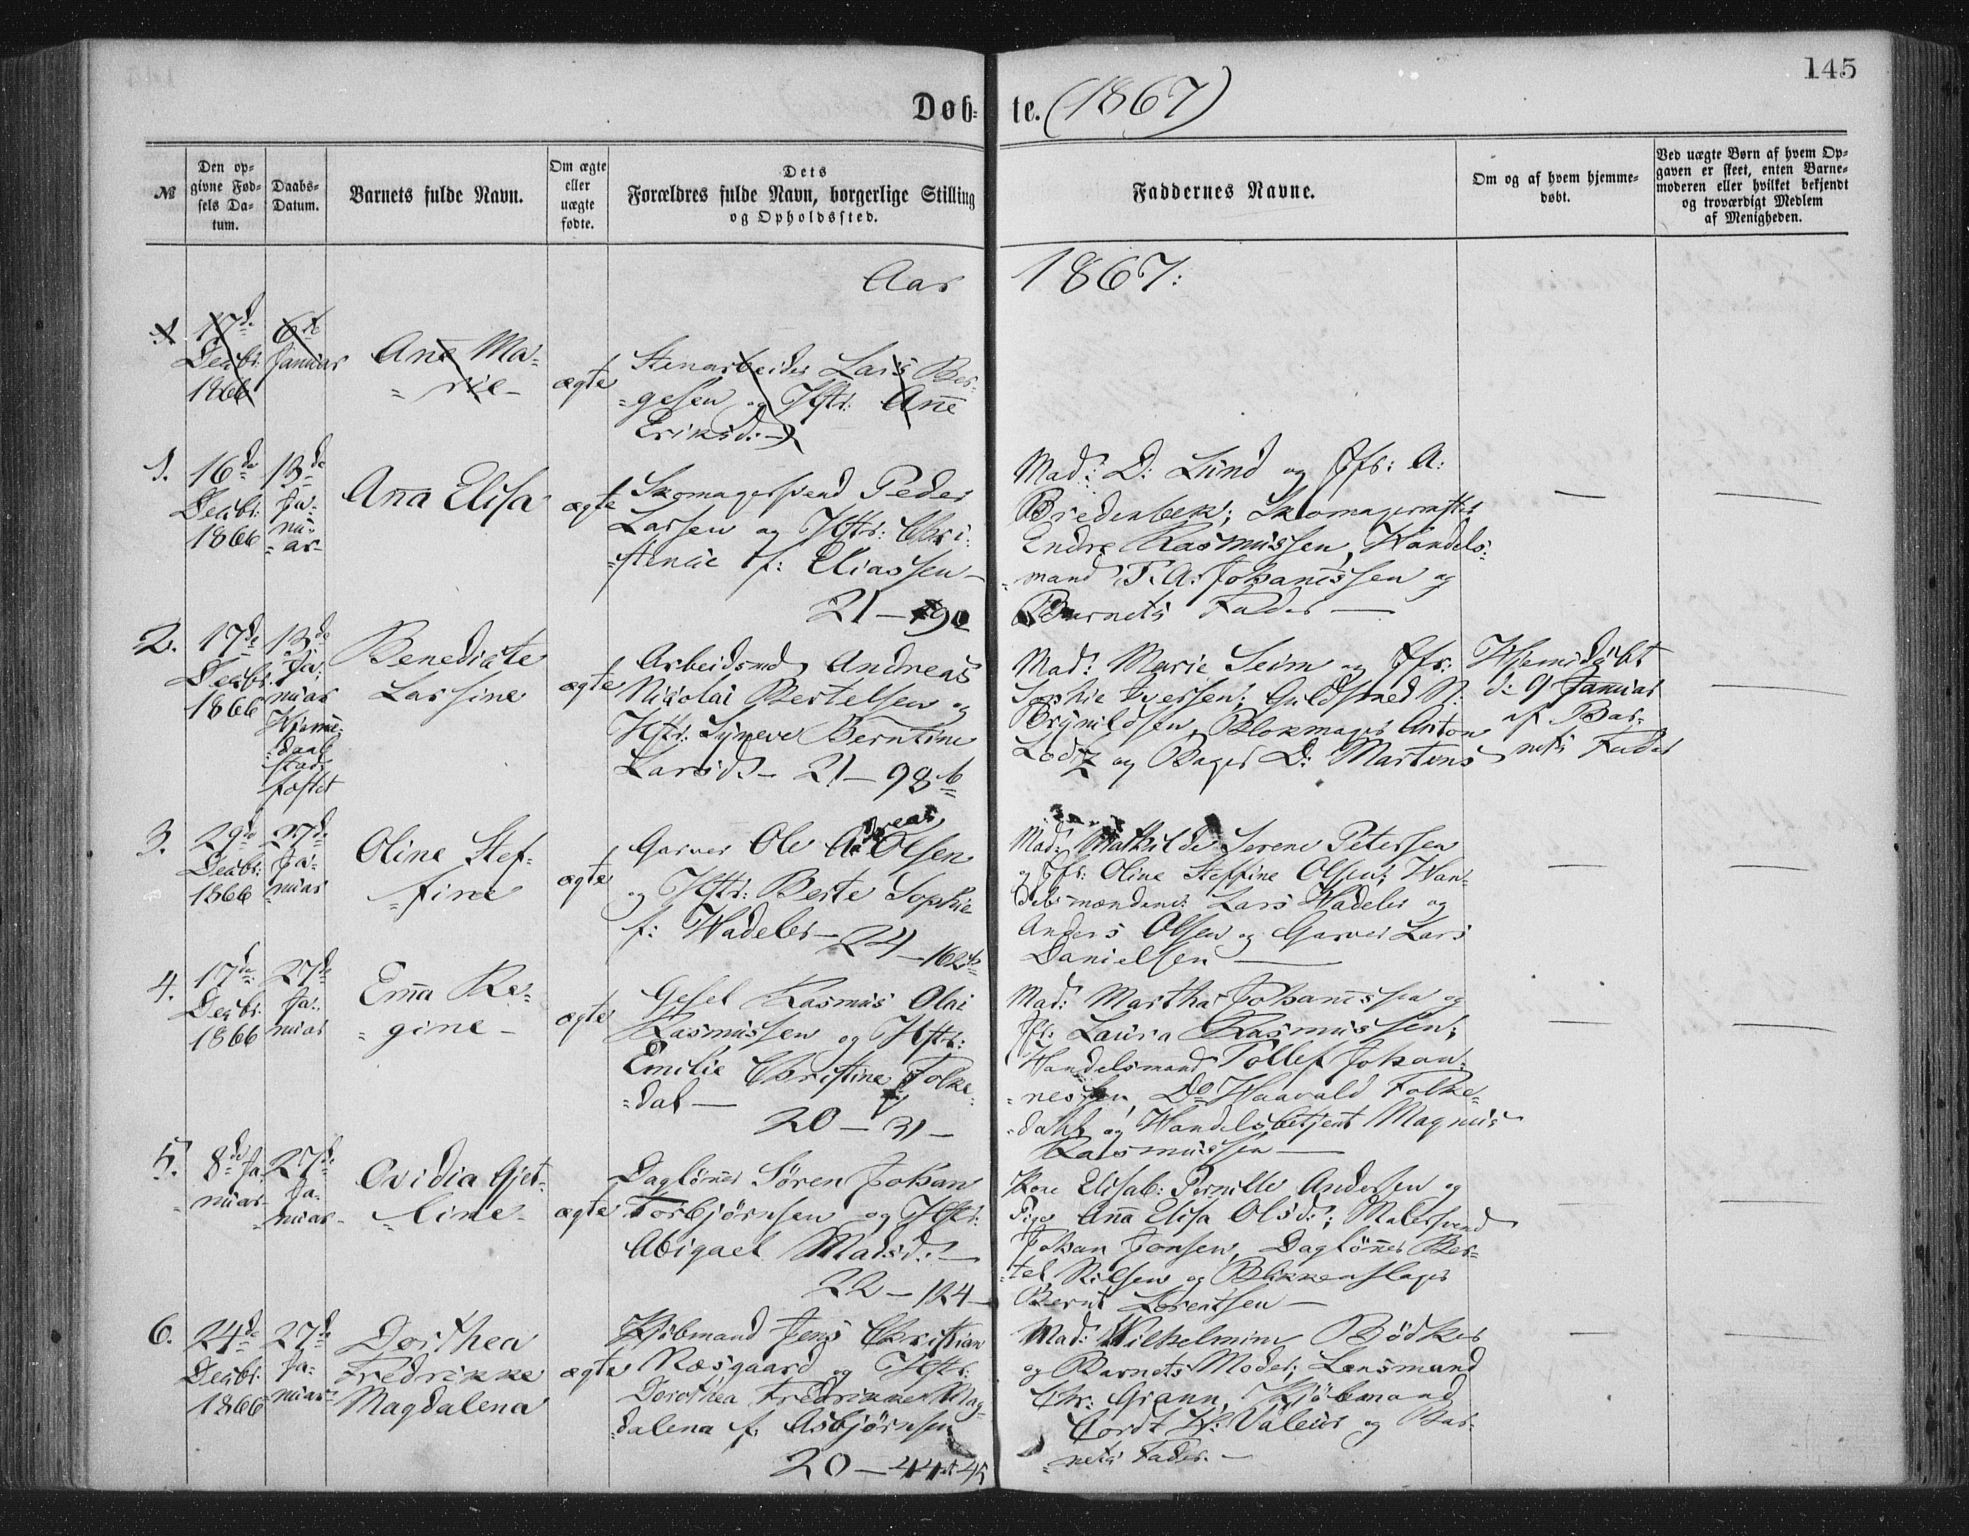 145
Døb- te. (1867)
№
Den op-
givne Fød-
sels Da-
tum.
Daabs-
Datum.
Barnets fulde Navn.
Om ægte
eller
uægte
fødte.
Dets
Forældres fulde Navn, borgerlige Stilling
og Opholdssted.
Faddernes Navne.
Om og af hvem hjemme-
døbt.
Ved uægte Børn af hvem Op-
gaven er skeet, enten Barne-
moderen eller hvilket bekjendt
og troværdigt Medlem
af Menigheden.
Aar 1867:
1
17de
Decbr.
1866
6te
Januar
Ane Ma-
rie
ægte
Stenarbeider Lars Bør-
gesen og Hstr: Anne
Eriksd:
1.
16de
Decbr.
1866
13de
Ja-
nu-
ar
Anna Elisa
ægte
Skomagersvend Peder
Larsen og Hstr: Chri-
stense f: Eliassen
21 — 90
Mad: D: Lund og Jfr: A:
Bredenbek; Skomagermester
Endre Rasmussen, Handels-
mand T. A. Johannessen og
Barnets Fader —
2.
17de
Decbr.
1866
13de
Ja-
nuar
Hjemme-
daab
stad-
fæstet
Benedicte
Larsine
ægte
Arbeidsmd Andreas
Nicolai Bertelsen og
Hstr: Syneve Berntine
Larsd. — 21 — 98 b
Mad: Marie Seim og Jfr:
Sophie Iversen; Guldsmed N.
Brynildsen, Blokmager Anton
Lodtz og Bager D: Martens
Hjemmedøbt
d: 9 Januar
af Bar-
nets Fader
3.
29de
Decbr.
1866
27de
Ja-
nuar
Oline Stef-
fine
ægte
Garver Ole Andreas Olsen
og Hstr: Berte Sophie
f: Hadeler — 24 — 162 b
Mad: Mathilde Serene Petersen
og Jfr: Oline Steffine Olsen; Han-
delsmændene Lars Hadeler og
Anders Olsen og Garver Lars
Danielsen —
4.
17de
Decbr.
1866
27de
Ja-
nuar
Emma Re-
gine
ægte
Gesel Rasmus Olai
Rasmussen og Hstr:
Emilie Christine Folke-
dal —
20 — 31 —
Mad: Martha Johannessen og
Jfr: Laura Rasmussen;
Handelsmand Tollef Johan-
nessen, Do Haavald Folke-
dahl og Handelsbetjent Magnus
Rasmussen —
5.
8de Ja-
nuar
27de
Ja-
nuar
Ovidia Gjet-
line
ægte
Daglønner Søren Johan
Torbjørnsen og Hstr:
Abigael Madsd: —
22 — 124 —
Kone Elisab: Pernille Andersen og
Pige Anna Elisa Olsd:; Malersvend
Johan Jonsen, Daglønner Ber-
tel Nilsen og Blikkenslager
Bernt Lorentsen —
6.
24de
Decbr.
1866
27de
Ja-
nuar
Dorthea
Fredrikke
Magdalena
ægte
Kjøbmand Jens Christian
Næsgaard og Hstr:
Dorothea Fredrikke Mag-
dalena f. Asbjørnsen
20 — 44 45
Mad: Wilhelmine Bødker
og Barnets Moder; Lensmand
Chr. Grann, Kjøbmand
Cordt W. Valeur og Bar-
nets Fader. —